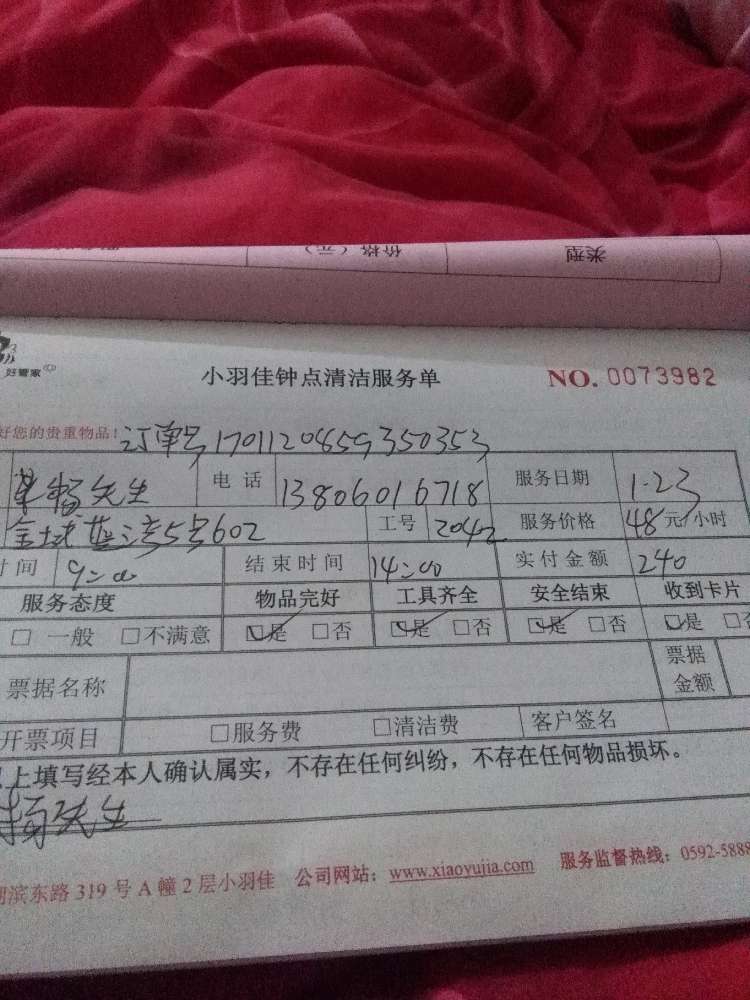 类型 价格（元）
好管家
小羽佳钟点清洁服务单 NO. 0073982
好您的贵重物品！订单号1701120859350353
杨先生 电话 13806016718 服务日期 1.23
金域蓝湾5号602 工号 2042 服务价格 48元/小时
时间 9:00 结束时间 14:00 实付金额 240
服务态度 物品完好 工具齐全 安全结束 收到卡片
□ 一般 □不满意 ☑是 □否 ☑是 □否 ☑是 □否 ☑是 □否
票据名称 票据金额
开票项目 □服务费 □清洁费 客户签名
上填写经本人确认属实，不存在任何纠纷，不存在任何物品损坏。
杨先生
湖滨东路319号A幢2层小羽佳 公司网站：www.xiaoyujia.com 服务监督热线：0592-5888